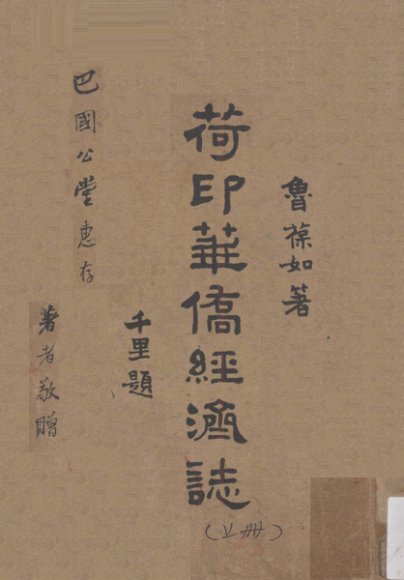 魯葆如著
荷印華僑經濟誌
(上冊)
千里題
巴國公堂惠存
著者敬贈